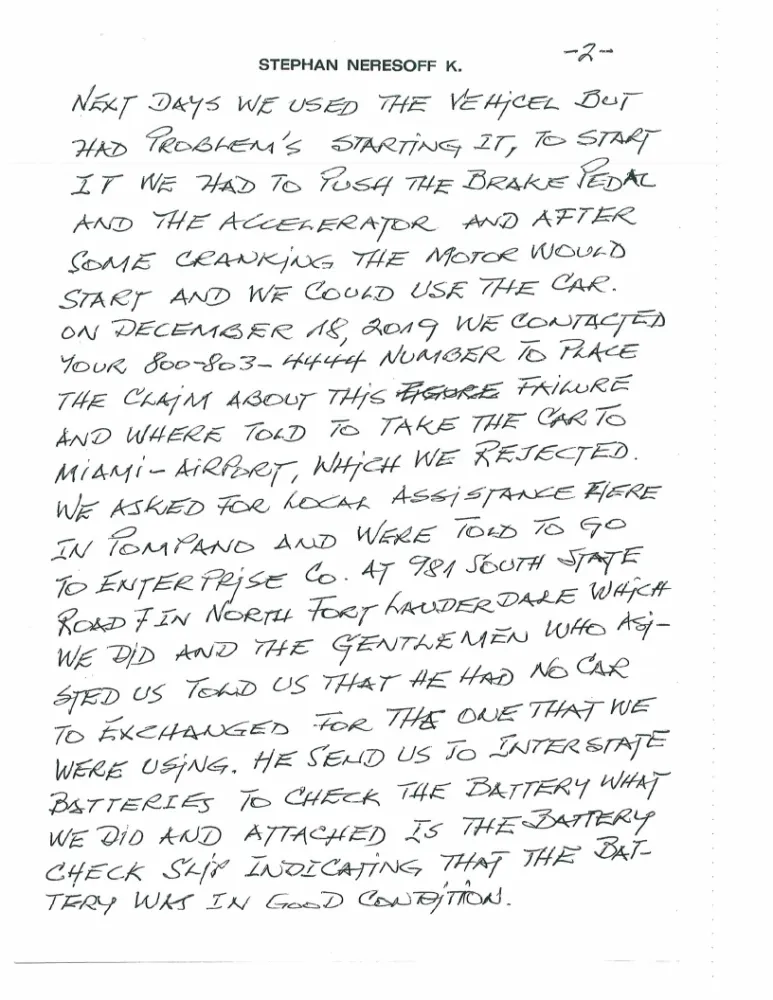 -2-
STEPHAN NERESOFF K.
NEXT DAYS WE USED THE VEHiCEL BUT
HAD PROBLEM'S STARTiNG IT, TO START
IT WE HAD TO PUSH THE BRAKE PEDAL
AND THE ACCELERATOR AND AFTER
SOME CRANKiNG THE MOTOR WOULD
START AND WE COULD USE THE CAR.
ON DECEMBER 18, 2019 WE CONTACTED
YOUR 800-803-4444 NUMBER TO PLACE
THE CLAiM ABOUT THiS FAiLURE
AND WHERE TOLD TO TAKE THE CAR TO
MiAMi - AiRPORT, WHiCH WE REJECTED.
WE ASKED FOR LOCAL ASSiSTANCE HERE
IN POMPANO AND WERE TOLD TO GO
TO ENTERPRiSE CO. AT 981 SOUTH STATE
ROAD 7 IN NORTH FORT LAUDERDALE WHiCH
WE DiD AND THE GENTLEMEN WHO ASi-
STED US TOLD US THAT HE HAD NO CAR
TO EXCHANGED FOR THE ONE THAT WE
WERE USiNG. HE SEND US TO INTERSTATE
BATTERIES TO CHECK THE BATTERY WHAT
WE DiD AND ATTACHED IS THE BATTERY
CHECK SLiP INDICATiNG THAT THE BAT-
TERY WAS IN GOOD CONDiTiON.